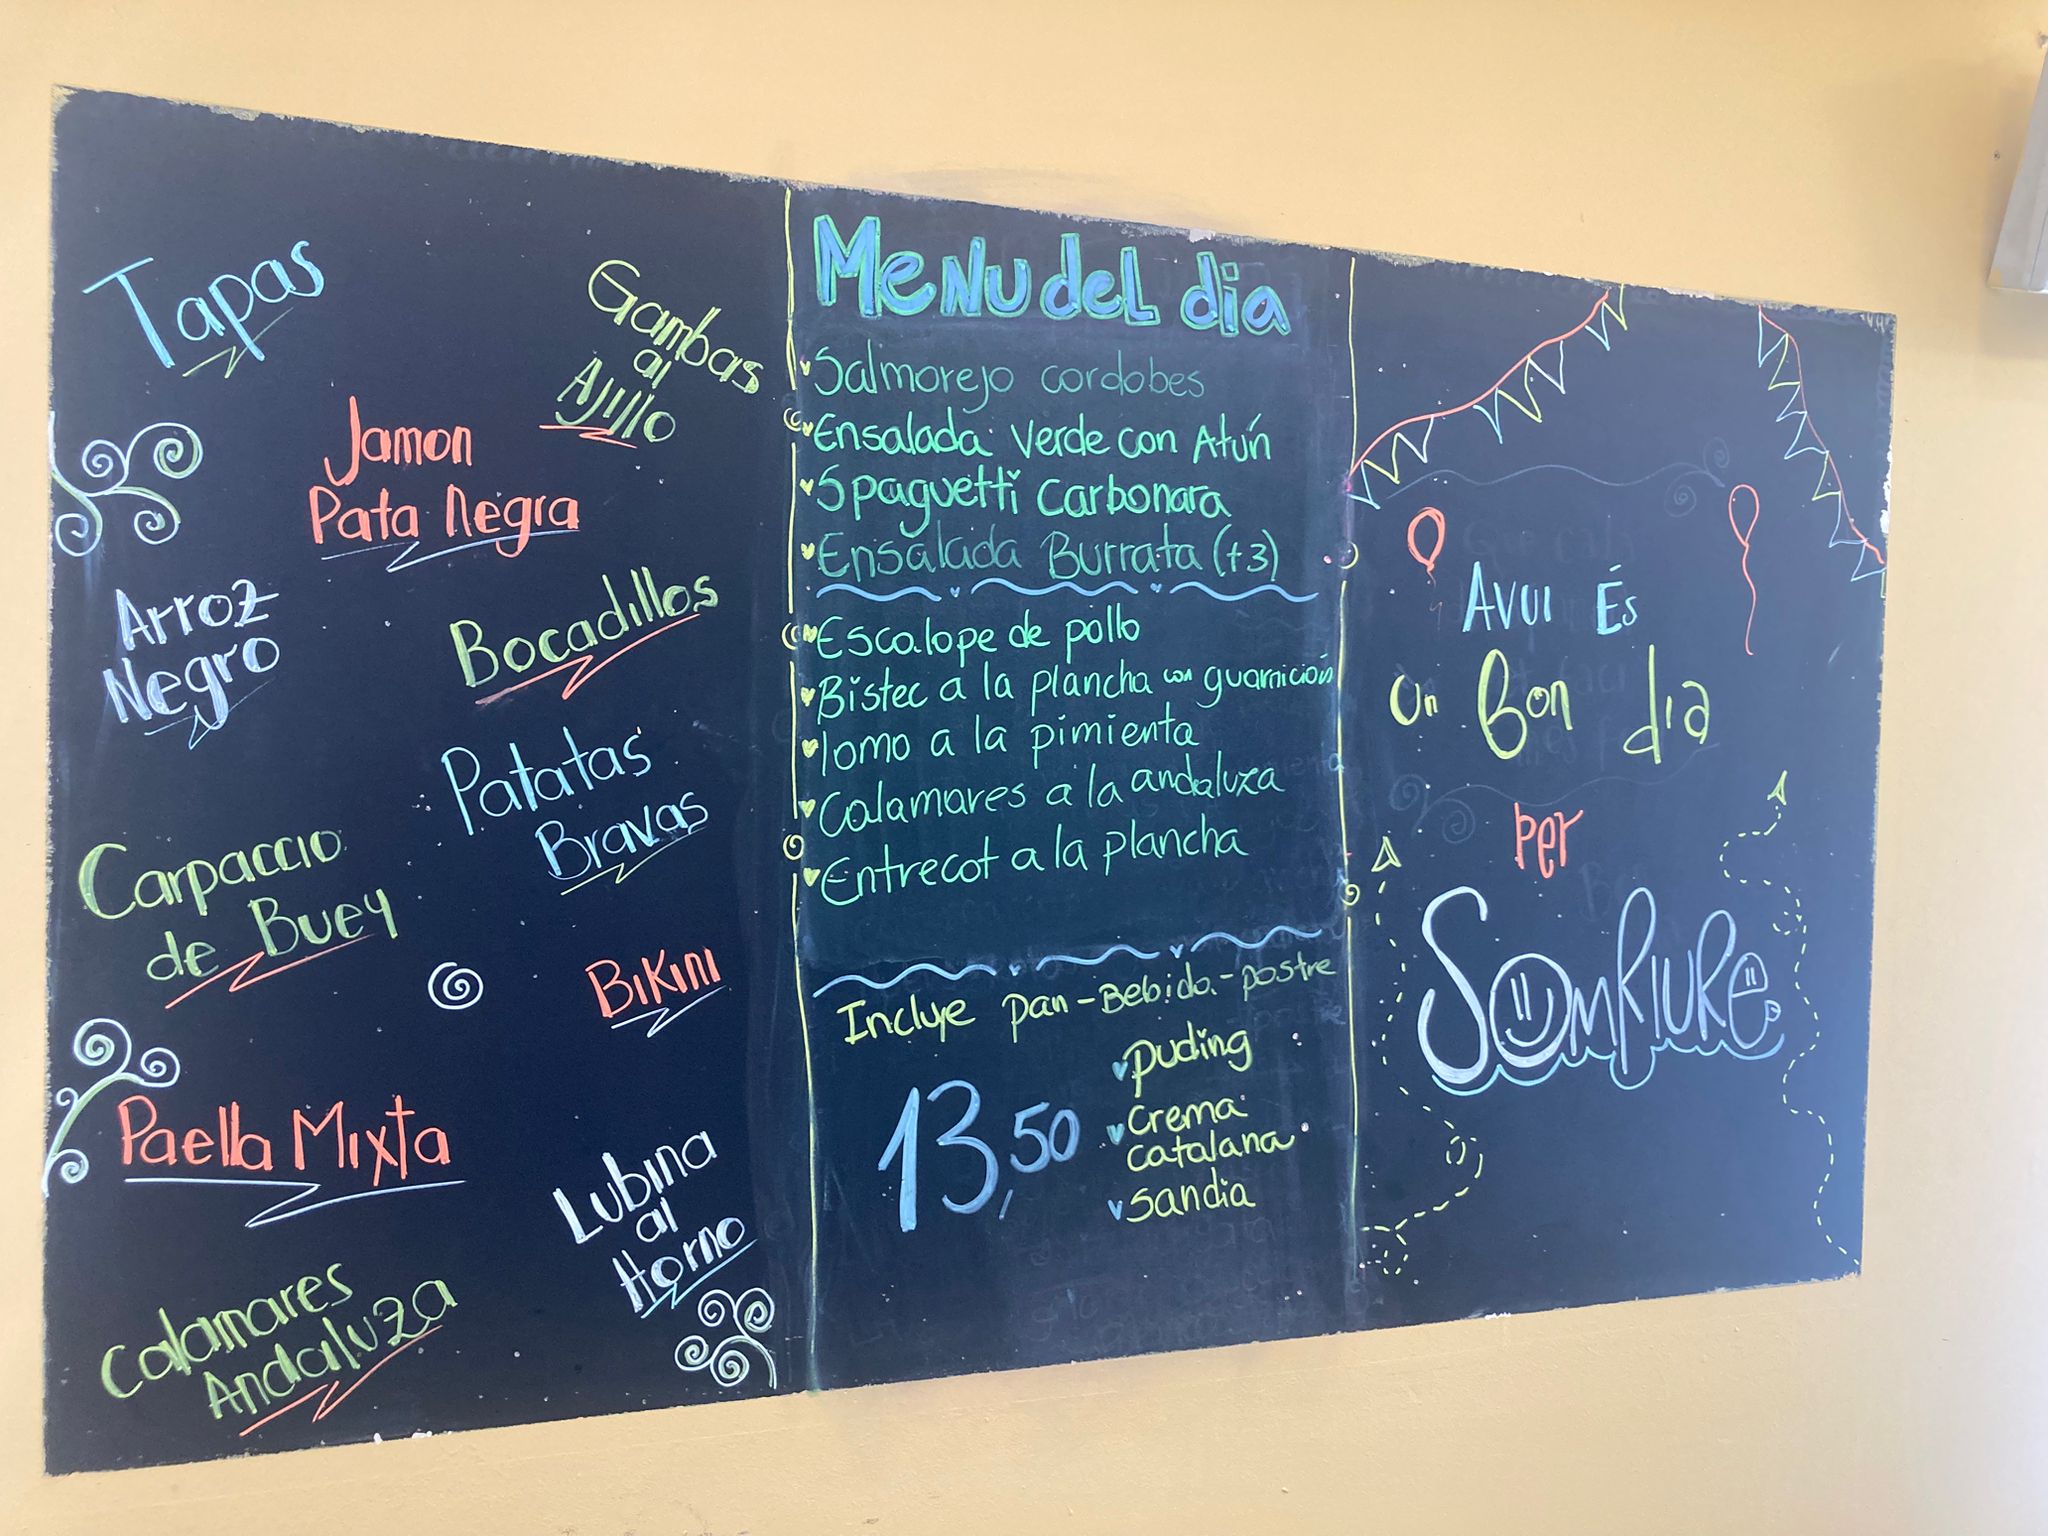 Tapas
Gambas
al
Ajillo
Jamon
Pata Negra
Arroz
Negro
Bocadillos
Patatas
Bravas
Carpaccio
de Buey
Bikini
Paella Mixta
Lubina
al
Horno
Calamares
Andaluza
Menu del dia
Salmorejo cordobes
Ensalada verde con Atún
Spaguetti Carbonara
Ensalada Burrata (+3)
Escalope de pollo
Bistec a la plancha con guarnición
lomo a la pimienta
Calamares a la andaluza
Entrecot a la plancha
Incluye pan-Bebida-postre
13,50
puding
Crema
Catalana
Sandia
AVUI ÉS
Un Bon dia
per
Somriure